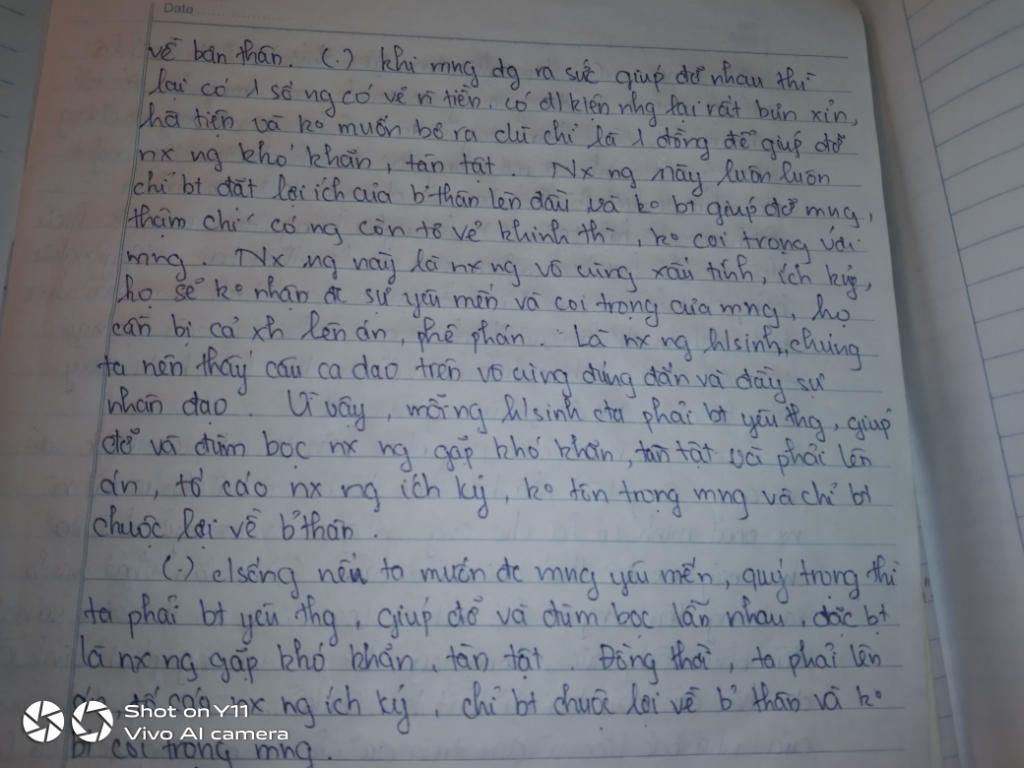 Date
về bản thân. (.) khi mng đg ra sức giúp đỡ nhau thì
lại có 1 số ng có vẻ n̄ tiền, có đ/kiện nhg lại rất bủn xỉn,
hà tiện và ko muốn bỏ ra dù chỉ là 1 đồng để giúp đỡ
nx ng khó khăn, tàn tật. Nx ng này luôn luôn
chỉ bt đặt lợi ích của b'thân lên đầu và ko bt giúp đỡ mng,
thậm chí có ng còn tỏ vẻ khinh thì, ko coi trọng với
mng. Nx ng này là nx ng vô cùng xấu tính, ích kỷ,
họ sẽ ko nhận đc sự yêu mến và coi trọng của mng, họ
cần bị cả xh lên án, phê phán. Là nx ng h/sinh, chúng
ta nên thấy câu ca dao trên vô cùng đúng đắn và đầy sự
nhân đạo. Vì vậy, mỗi ng h/sinh cta phải bt yêu thg, giúp
đỡ và đùm bọc nx ng gặp khó khăn, tàn tật và phải lên
án, tố cáo nx ng ích kỷ, ko tôn trọng mng và chỉ bt
chuộc lợi về b'thân.
(.) c/sống nếu ta muốn đc mng yêu mến, quý trọng thì
ta phải bt yêu thg, giúp đỡ và đùm bọc lẫn nhau, đặc bt
là nx ng gặp khó khăn, tàn tật. Đồng thời, ta phải lên
án, tố cáo nx ng ích kỷ, chỉ bt chuộc lợi về b'thân và ko
bt coi trọng mng.
Shot on Y11
Vivo AI camera